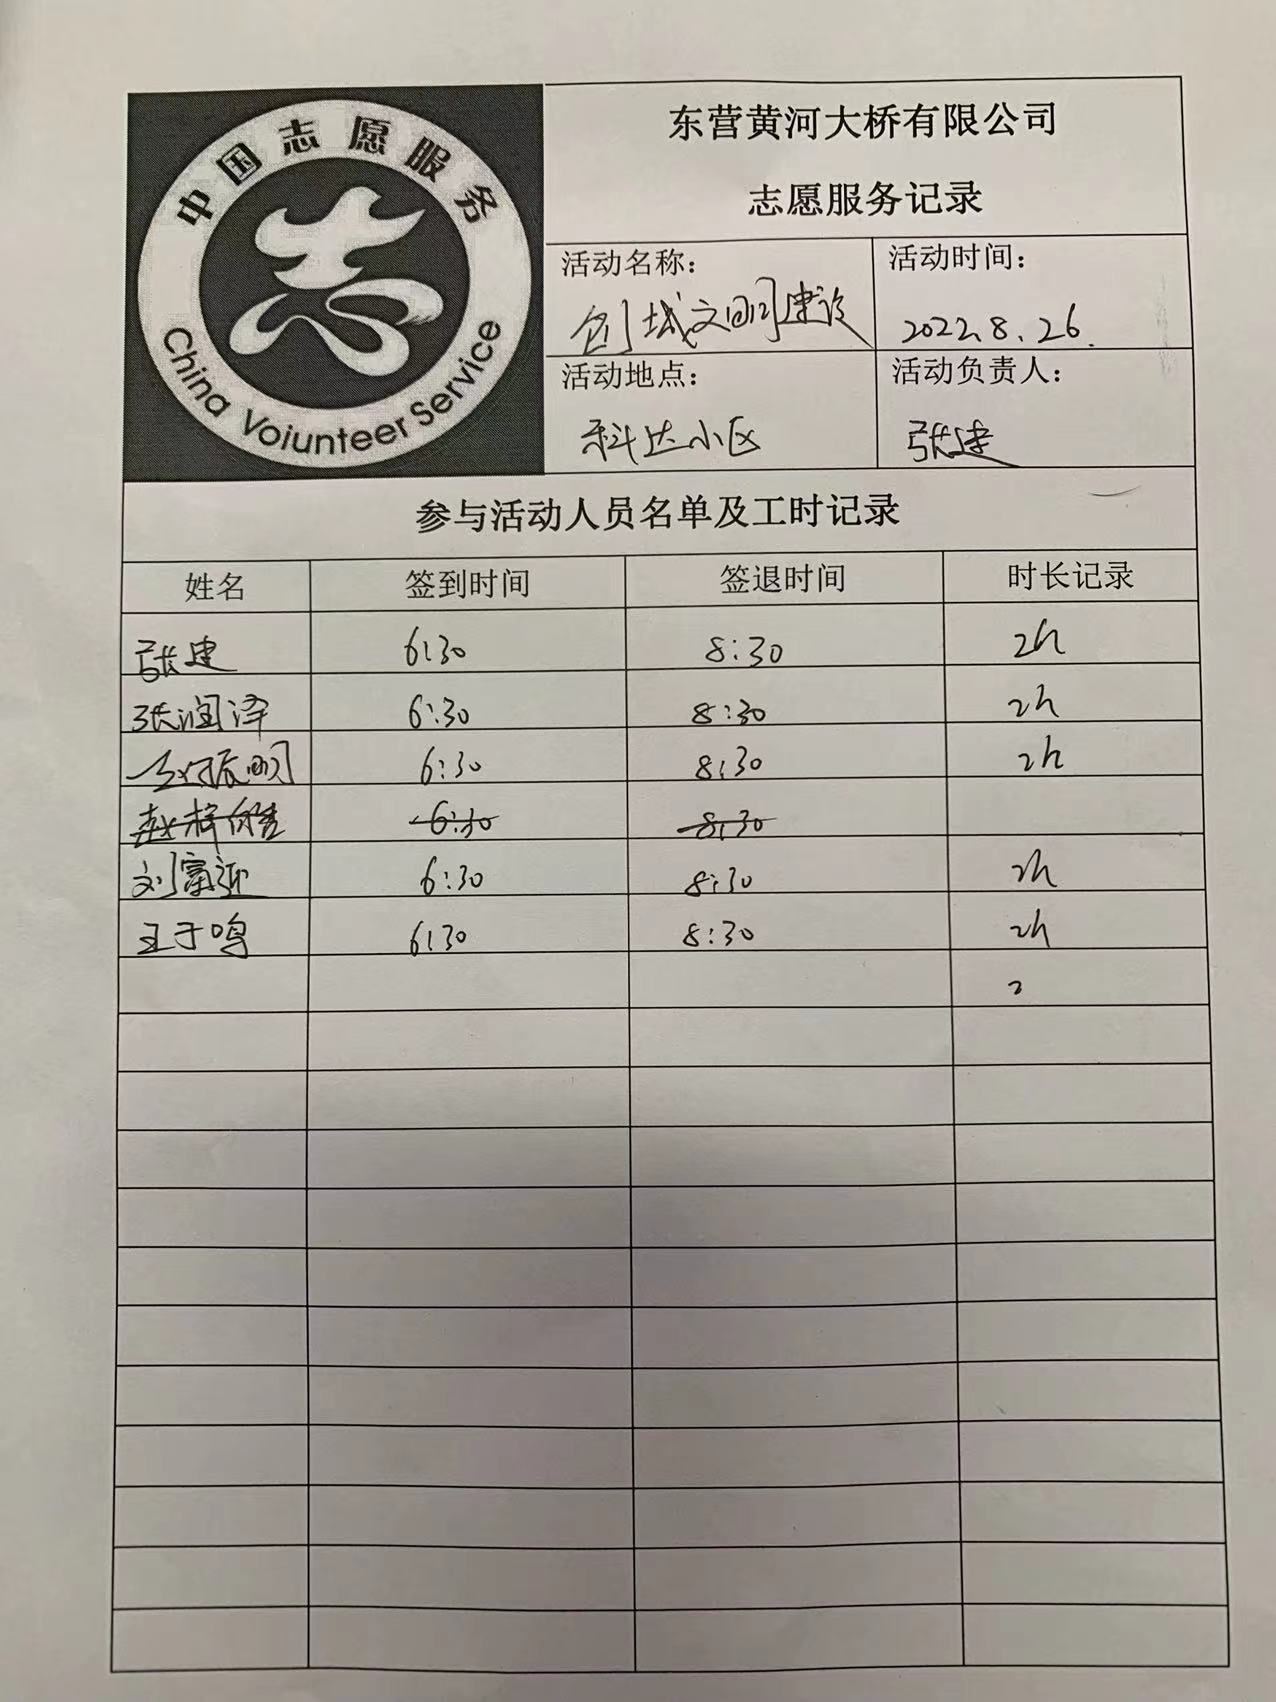 中国志愿服务
China Voiunteer Service
东营黄河大桥有限公司
志愿服务记录
活动名称：
创城文明建设
活动时间：
2022.8.26.
活动地点：
科达小区
活动负责人：
张建
参与活动人员名单及工时记录
姓名 签到时间 签退时间 时长记录
张建 6:30 8:30 2h
张润泽 6:30 8:30 2h
振明 6:30 8:30 2h
赵梓 6:30 8:30
刘富迎 6:30 8:30 2h
王于鸣 6:30 8:30 2h
2